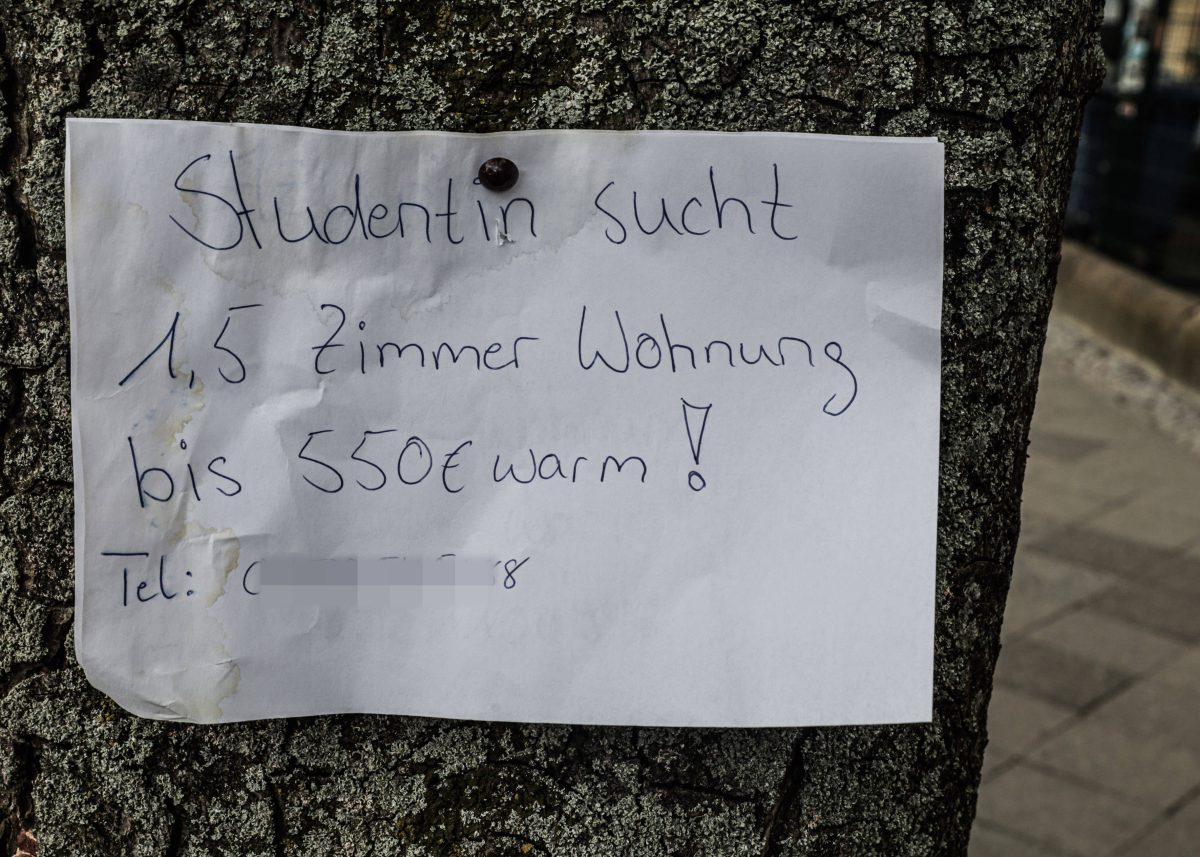 Studentin sucht
1,5 Zimmer Wohnung
bis 550€ warm!
Tel: 0 8